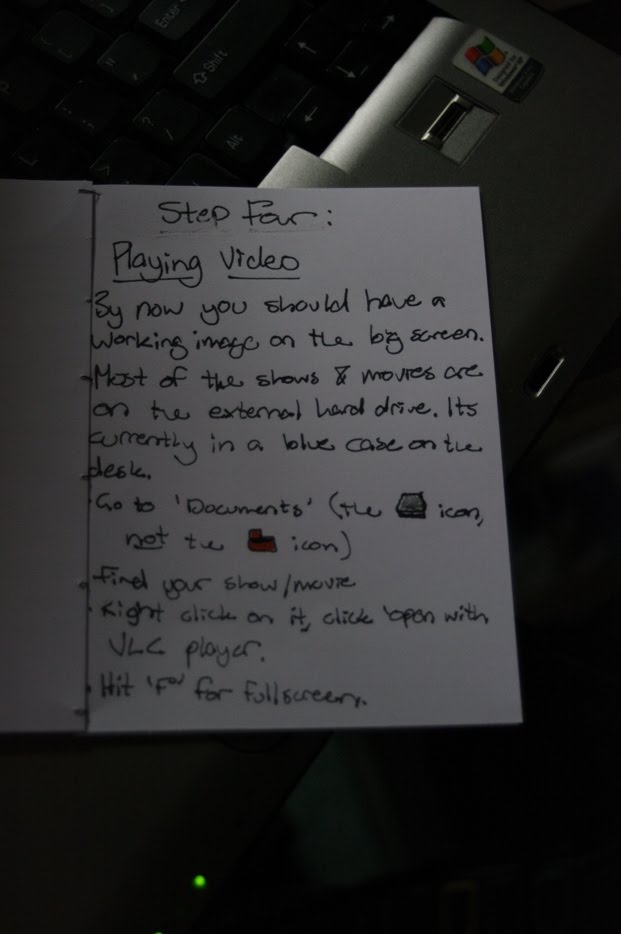 Enter
Shift
Alt
Step Four:
Playing Video
· By now you should have a
working image on the big screen.
· Most of the shows & movies are
on the external hard drive. Its
currently in a blue case on the
desk.
· Go to 'Documents' (the icon,
not the icon)
· Find your show/movie
· Right click on it, click 'open with
VLC player.
· Hit 'F' for fullscreen.